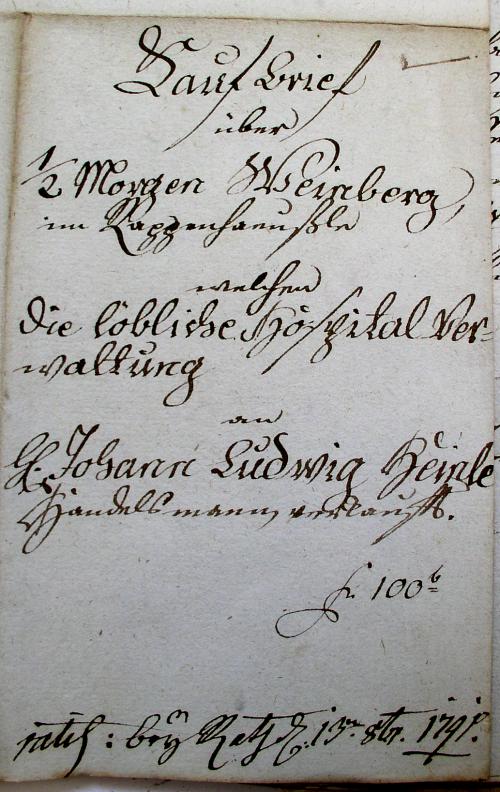 Kauf Brief
über
1/2 Morgen Weinberg,
im Kappenhaeußle
welchen
die löbliche Hospital Ver-
waltung
an
H. Johann Ludwig Heinle
Handelsmann verkaufft.
f. 100
ratif: bey Rath d. 13. 8br. 1791.